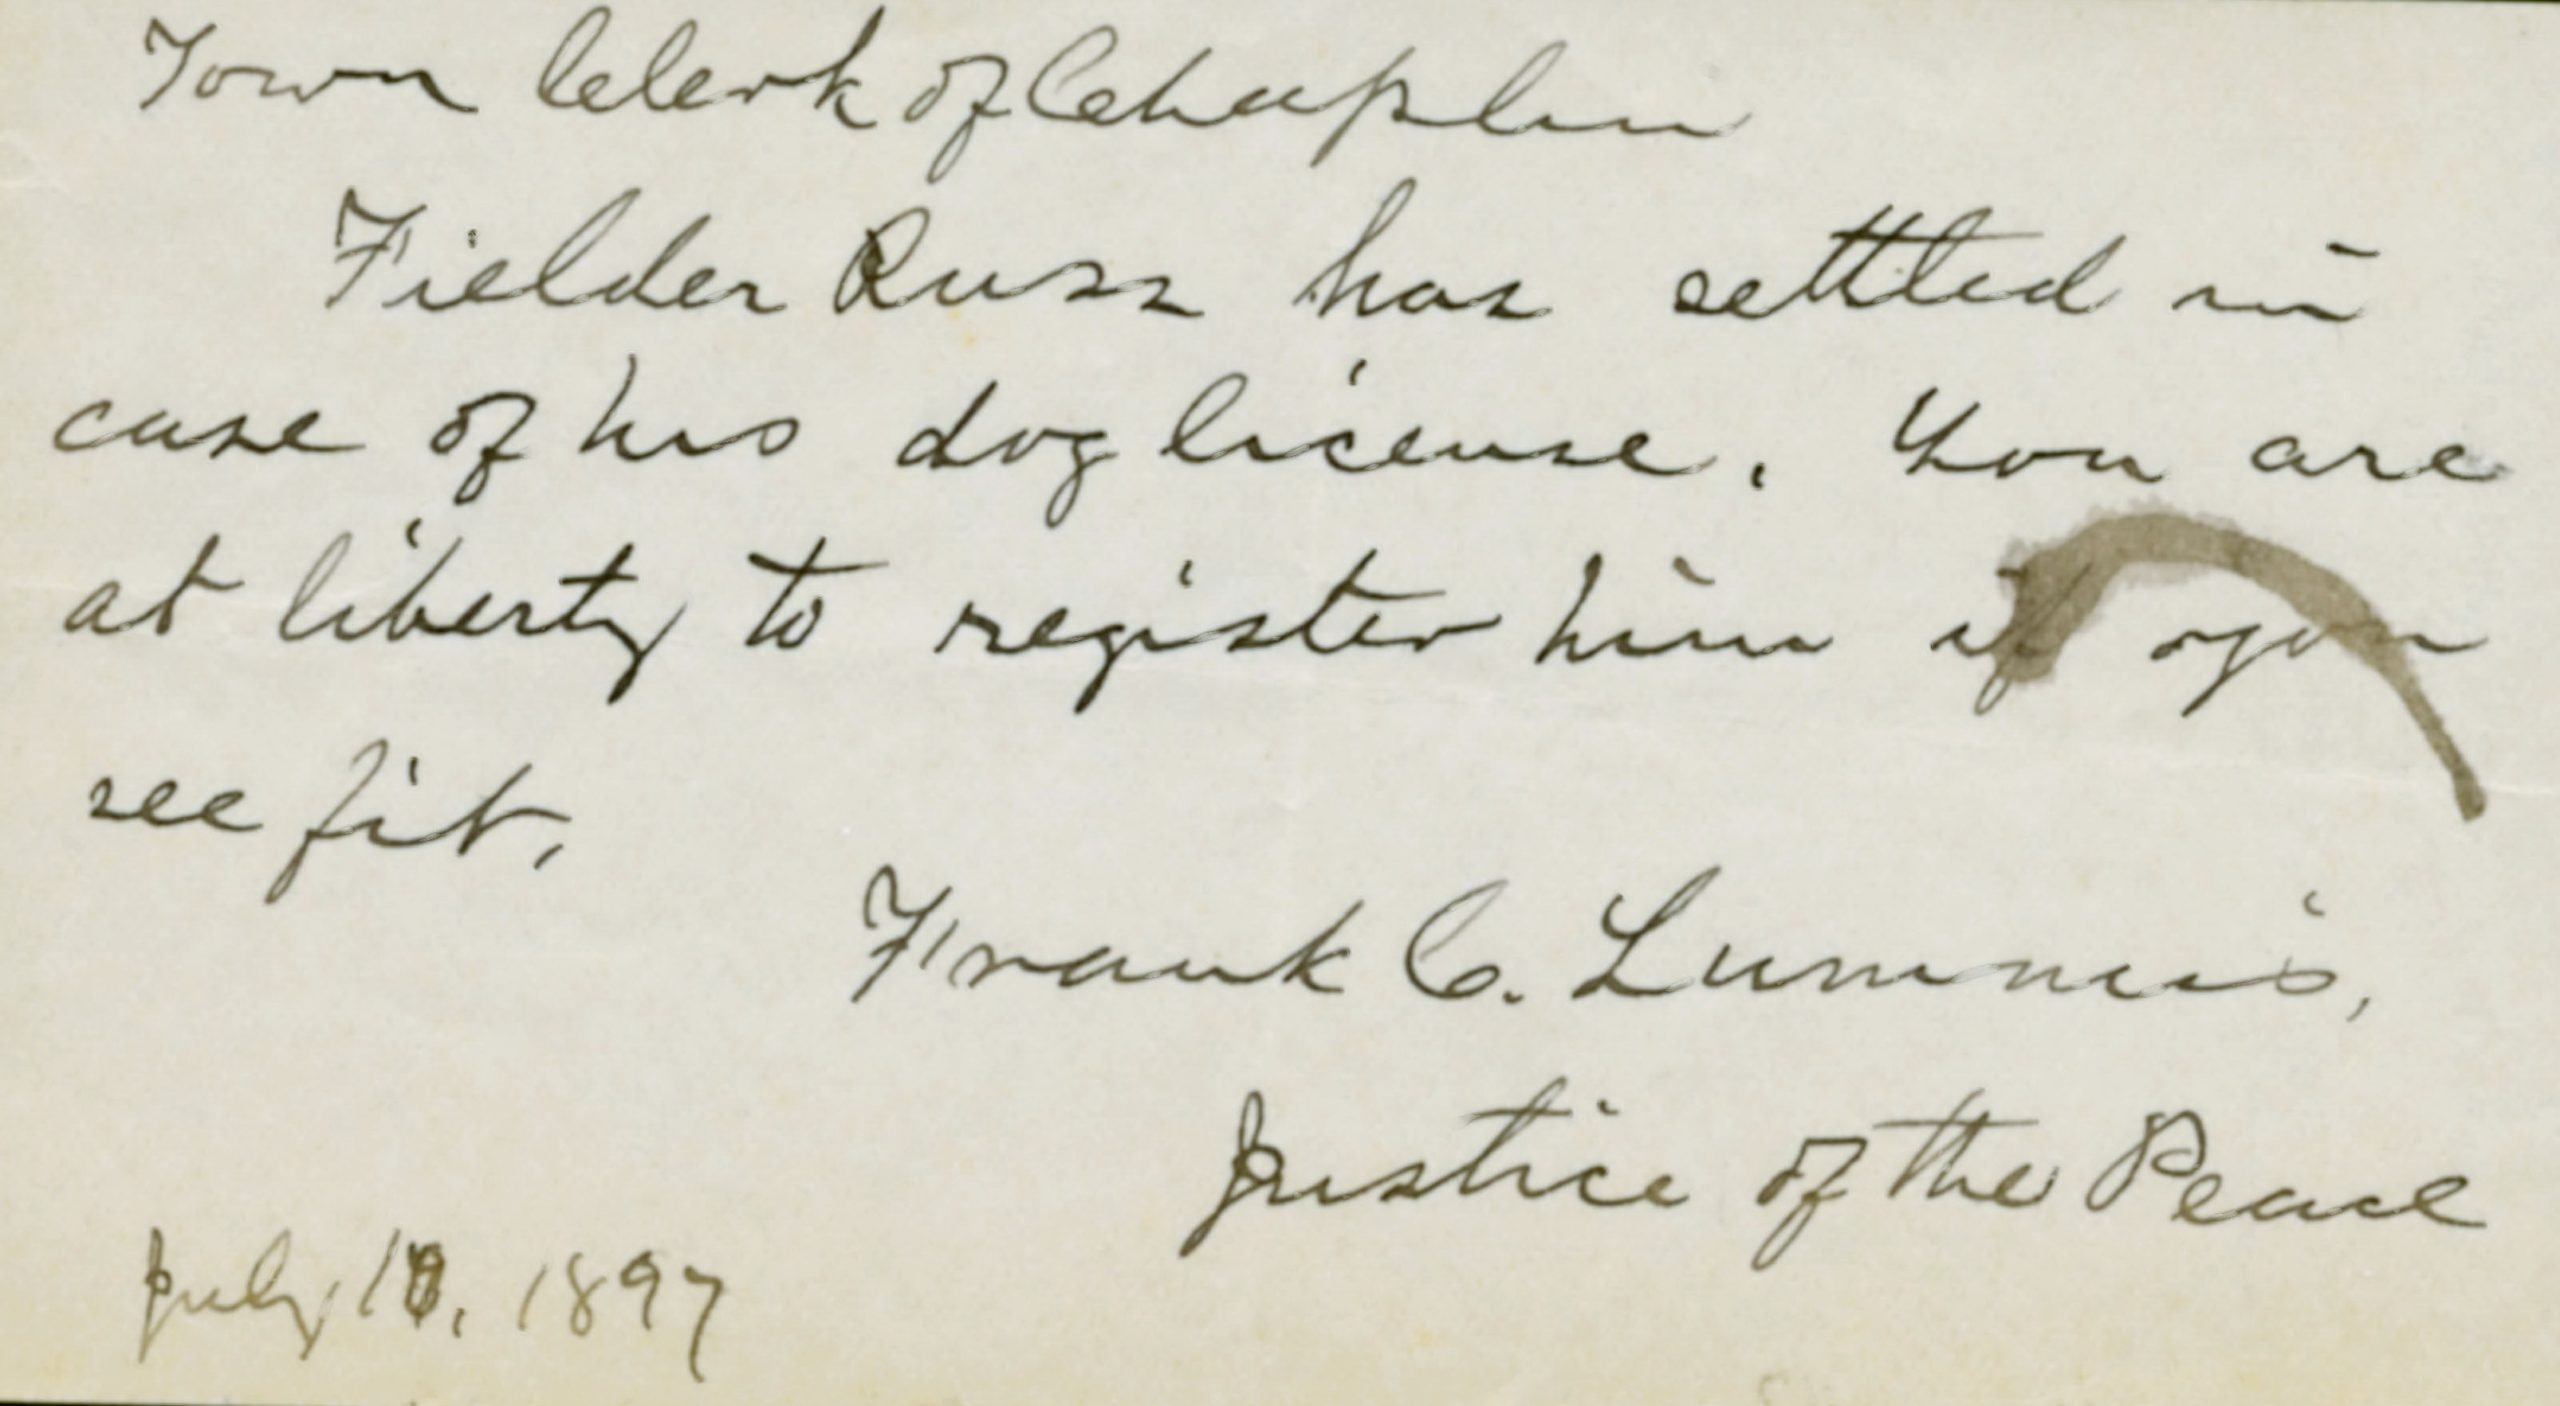 Town Clerk of Chaplin
Fielder Russ has settled in
case of his dog license. You are
at liberty to register him if you
see fit.
Frank C. Lummis,
Justice of the Peace
July 10, 1897